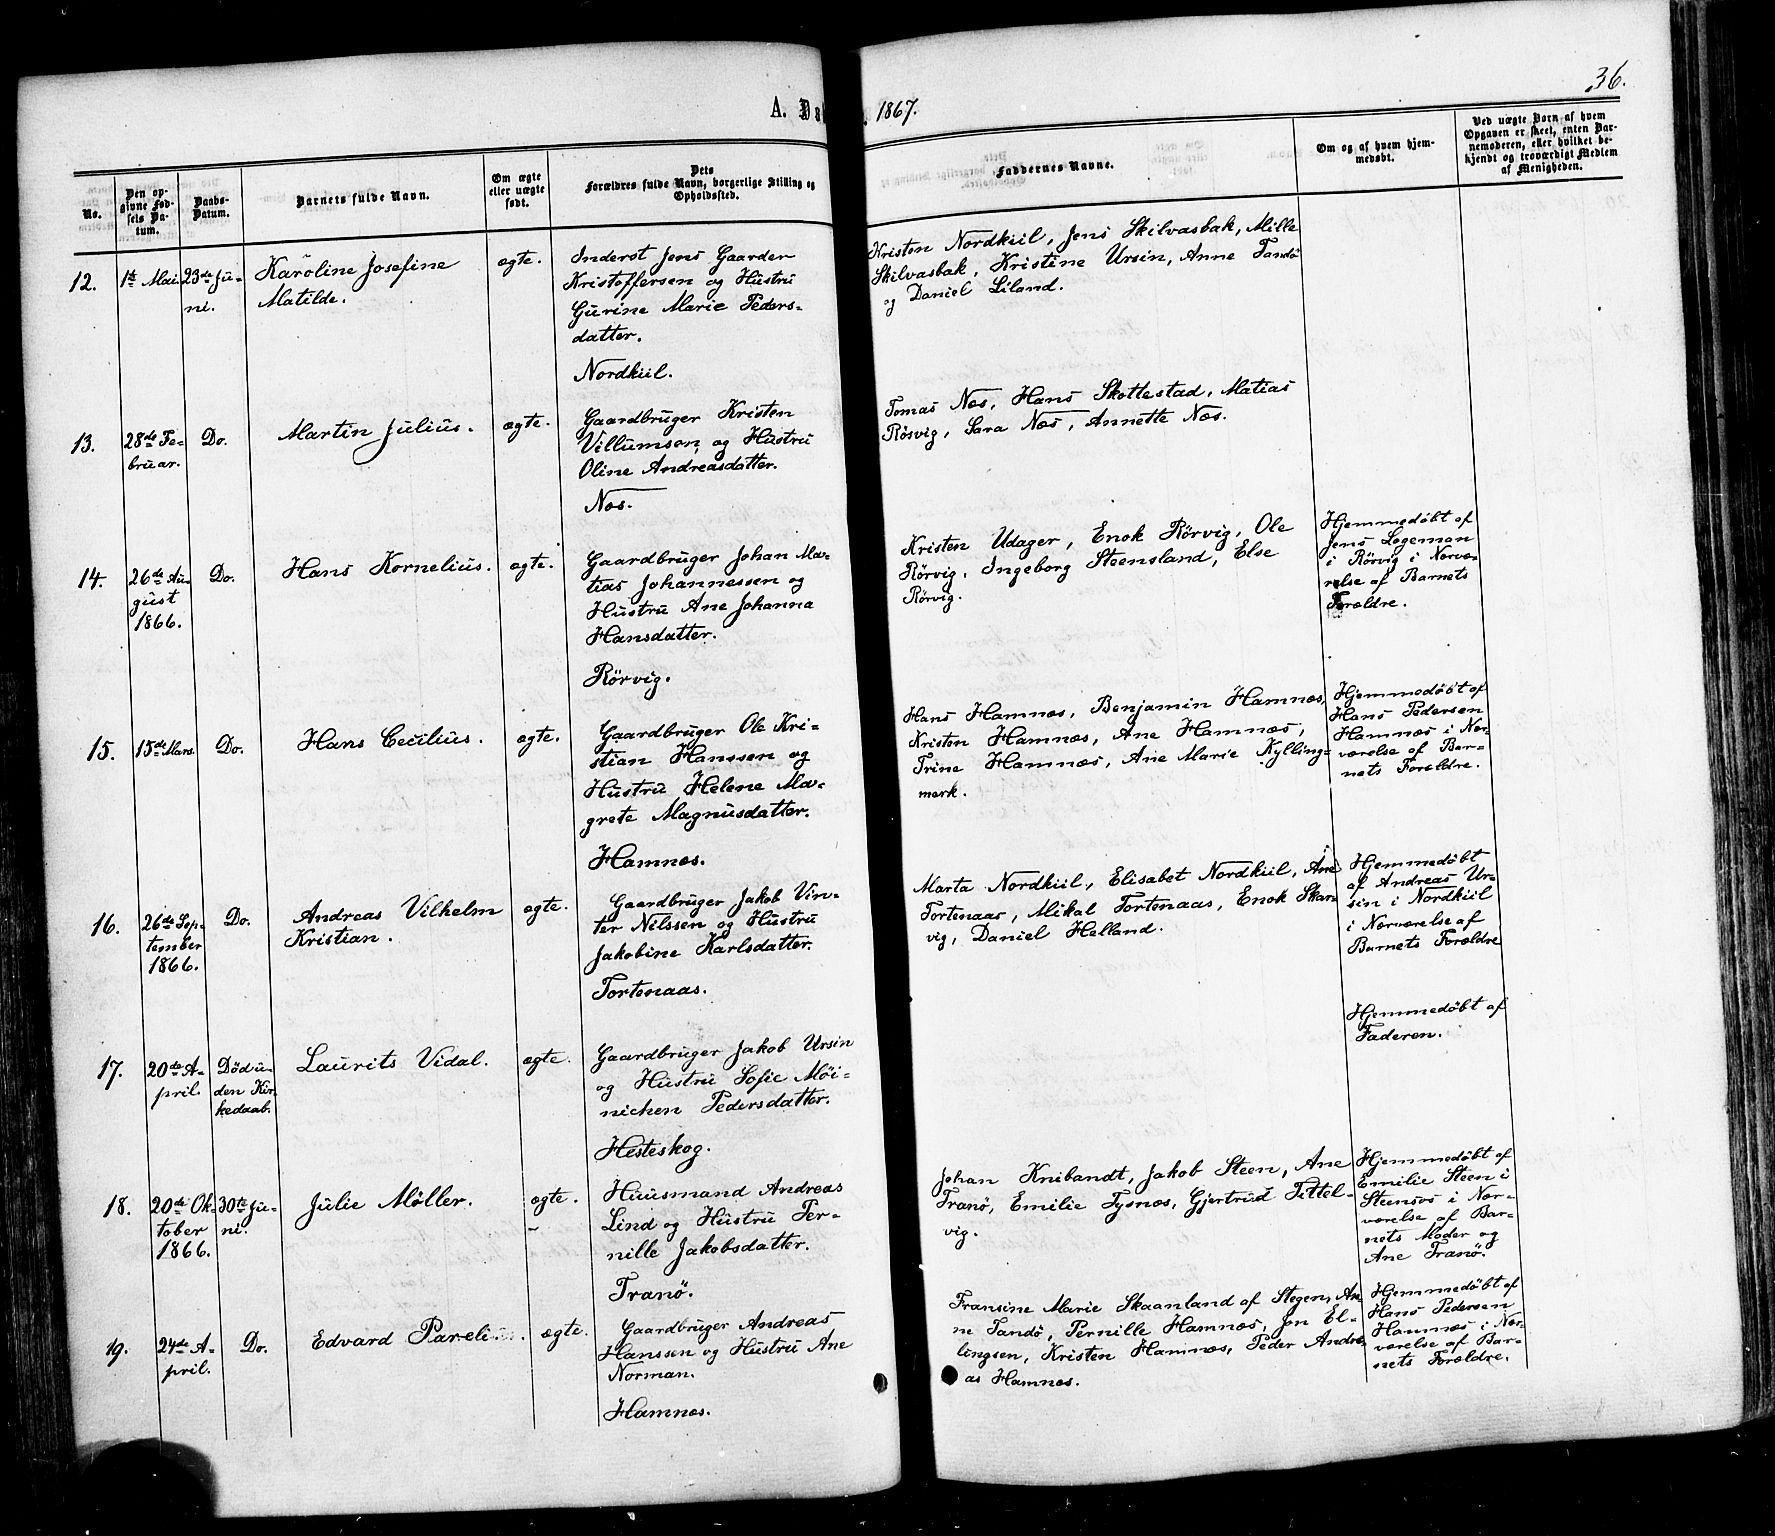 A. Dø
1867.
36.
No.
Den op-
givne Fød-
sels Da-
tum.
Daabs-
Datum.
Barnets fulde Navn.
Om ægte
eller uægte
født.
Dets
Forældres fulde Navn, borgerlige Stilling og
Opholdssted.
Faddernes Navne.
Om og af hvem hjem-
medøbt.
Ved uægte Børn af hvem
Opgaven er skeet, enten Bar-
nemoderen, eller hvilket be-
kjendt og troværdigt Medlem
af Menigheden.
12.
1ste Mai.
23de Ju-
ni.
Karoline Josefine
Matilde.
ægte.
Inderst Jens Gaarder
Kristoffersen og Hustru
Gurine Marie Peders-
datter.
Nordkiil.
Kristen Nordkiil, Jens Skilvasbak, Mille
Skilvasbak, Kristine Ursin, Anne Tandø
og Daniel Liland.
13.
28de Fe-
bruar.
Do.
Martin Julius.
ægte.
Gaardbruger Kristen
Villumsen, og Hustru
Oline Andreasdatter.
Næs.
Tomas Næs, Hans Skottestad, Matias
Røsvig, Sara Næs, Annette Næs.
14.
26de Au-
gust
1866.
Do.
Hans Kornelius.
ægte.
Gaardbruger Johan Ma-
tias Johannessen og
Hustru Ane Johanna
Hansdatter.
Rörvig.
Kristen Udager, Enok Rörvig, Ole
Rörvig, Ingeborg Steensland, Else
Rörvig.
Hjemmedøbt af
Jens Legeman
i Rörvig i Nærvæ-
relse af Barnets
Forældre.
15.
15de Mars.
Do.
Hans Cecilius.
ægte.
Gaardbruger Ole Kri-
stian Hanssen og
Hustru Helene Ma-
grete Magnusdatter.
Hamnæs.
Hans Hamnæs, Benjamin Hamnæs,
Kristen Hamnæs, Ane Hamnæs,
Trine Hamnæs, Ane Marie Kylling-
mark.
Hjemmedøbt af
Hans Pedersen
Hamnæs i Nær-
værelse af Bar-
nets Forældre.
16.
26de Sep-
tember
1866.
Do.
Andreas Vilhelm
Kristian.
ægte.
Gaardbruger Jakob Vin-
ter Nilssen og Hustru
Jakobine Karlsdatter.
Tortenaas.
Marta Nordkiil, Elisabet Nordkiil, Ane
Tortenaas, Mikal Tortenaas, Enok Skar-
vig, Daniel Helland.
Hjemmedøbt
af Andreas Ur-
sin i Nordkiil
i Nærværelse af
Barnets Forældre
17.
20de A-
pril.
Död u-
den Kir-
kedaab.
Laurits Vidal.
ægte.
Gaardbruger Jakob Ursin
og Hustru Sofie Möi-
nichen Pedersdatter.
Hesteskog.
Hjemmedøbt af
Faderen.
18.
20de Ok-
tober
1866.
30te Ju-
ni.
Julie Møller.
ægte.
Huusmand Andreas
Lind og Hustru Per-
nille Jakobsdatter.
Tranö.
Johan Knibandt, Jakob Steen, Ane
Tranø, Emilie Tysnæs, Gjertrud Tittel-
vig.
Hjemmedøbt af
Emilie Steen i
Steensæs i Nær-
værelse af Bar-
nets Moder og
Ane Tranö.
19.
24de A-
pril.
Do.
Edvard Parelius.
ægte.
Gaardbruger Andreas
Hanssen og Hustru Ane
Norman.
Hamnæs.
Fransine Marie Skaanland af Stegen, An-
ne Tandø, Pernille Hamnæs, Jon El-
lingsen, Kristen Hamnæs, Peder Andre-
as Hamnæs.
Hjemmedøbt af
Hans Pedersen
Hamnæs i Nær-
værelse af Bar-
nets Forældre.